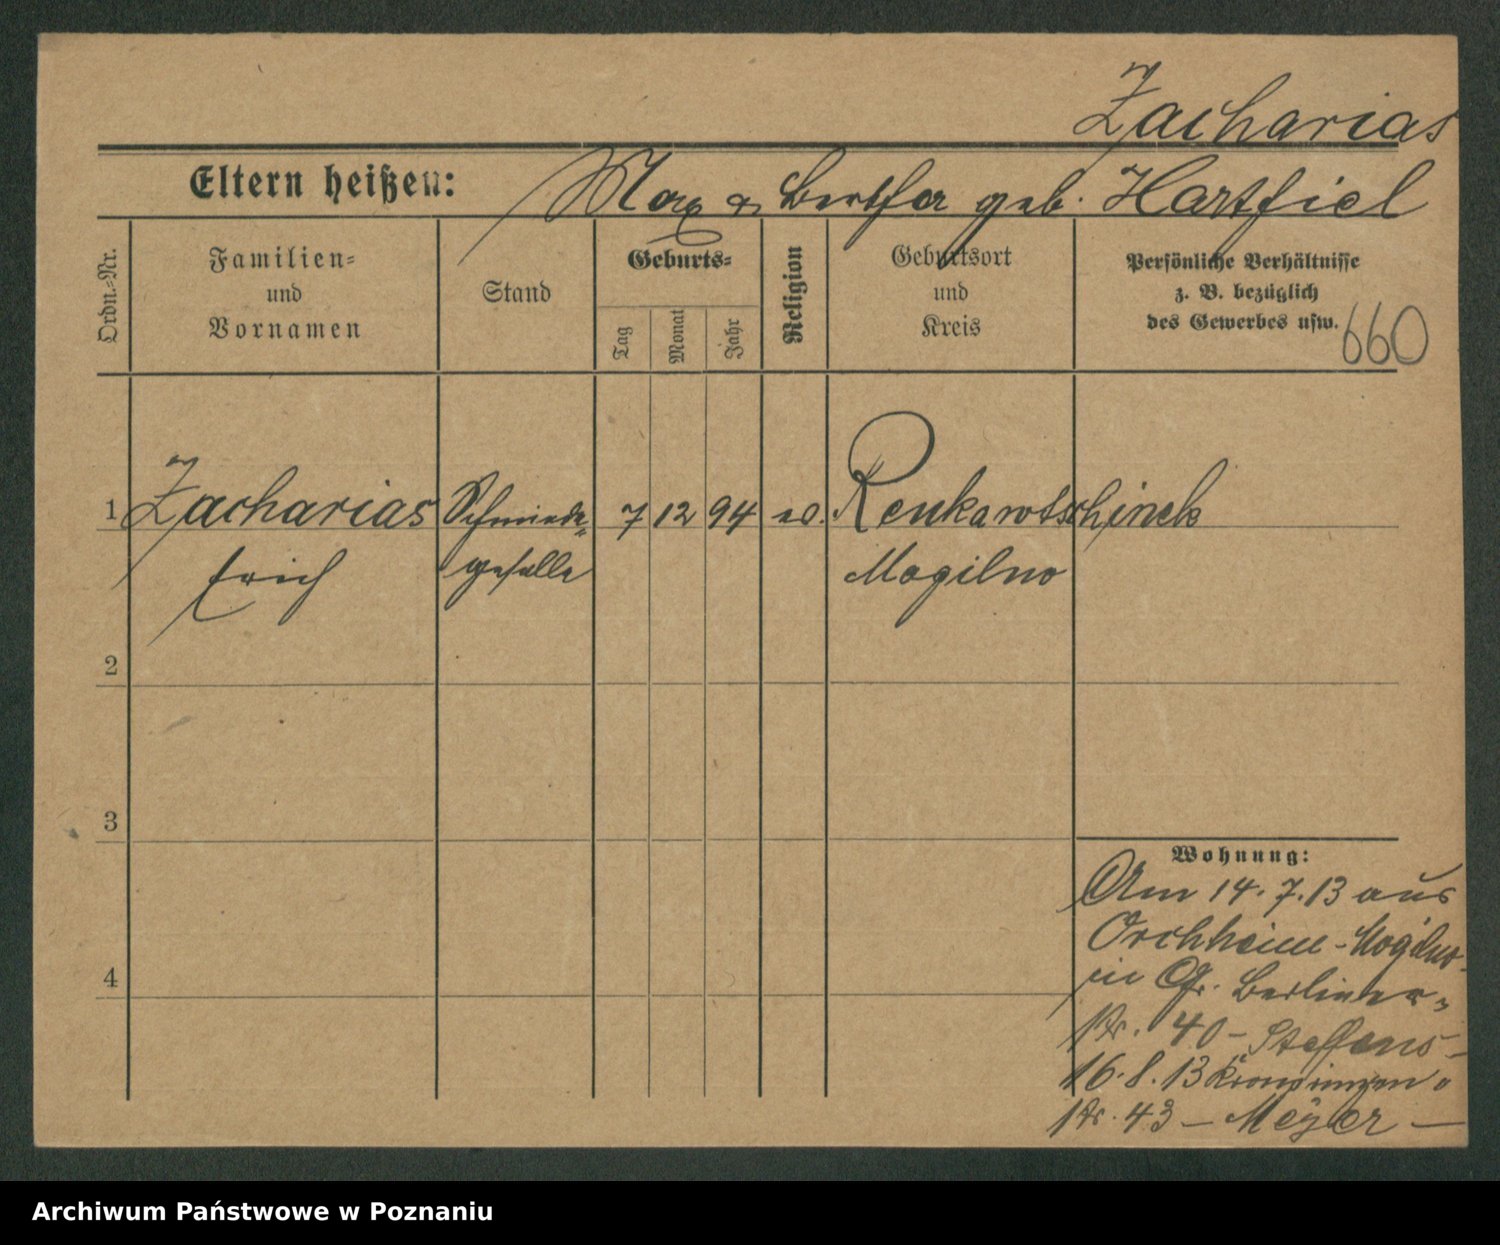 Zacharias
Eltern heißen: Max & Bertha geb. Hartfiel
Ordn.-Nr.
Familien-
und
Vornamen
Stand
Geburts-
Tag
Monat
Jahr
Religion
Geburtsort
und
Kreis
Persönliche Verhältnisse
z. B. bezüglich
des Gewerbes usw.
660
1 Zacharias Schmiede- 7 12 94 ev.
Erich geselle Mogilno
2
3
4
Wohnung:
Am 14.7.13 aus
Orchheim-Mogilno
in Gr. Berliner-
str. 40 - Steffens -
16.8.13 Kronprinzen-
str. 43 - Meyer -
Archiwum Państwowe w Poznaniu